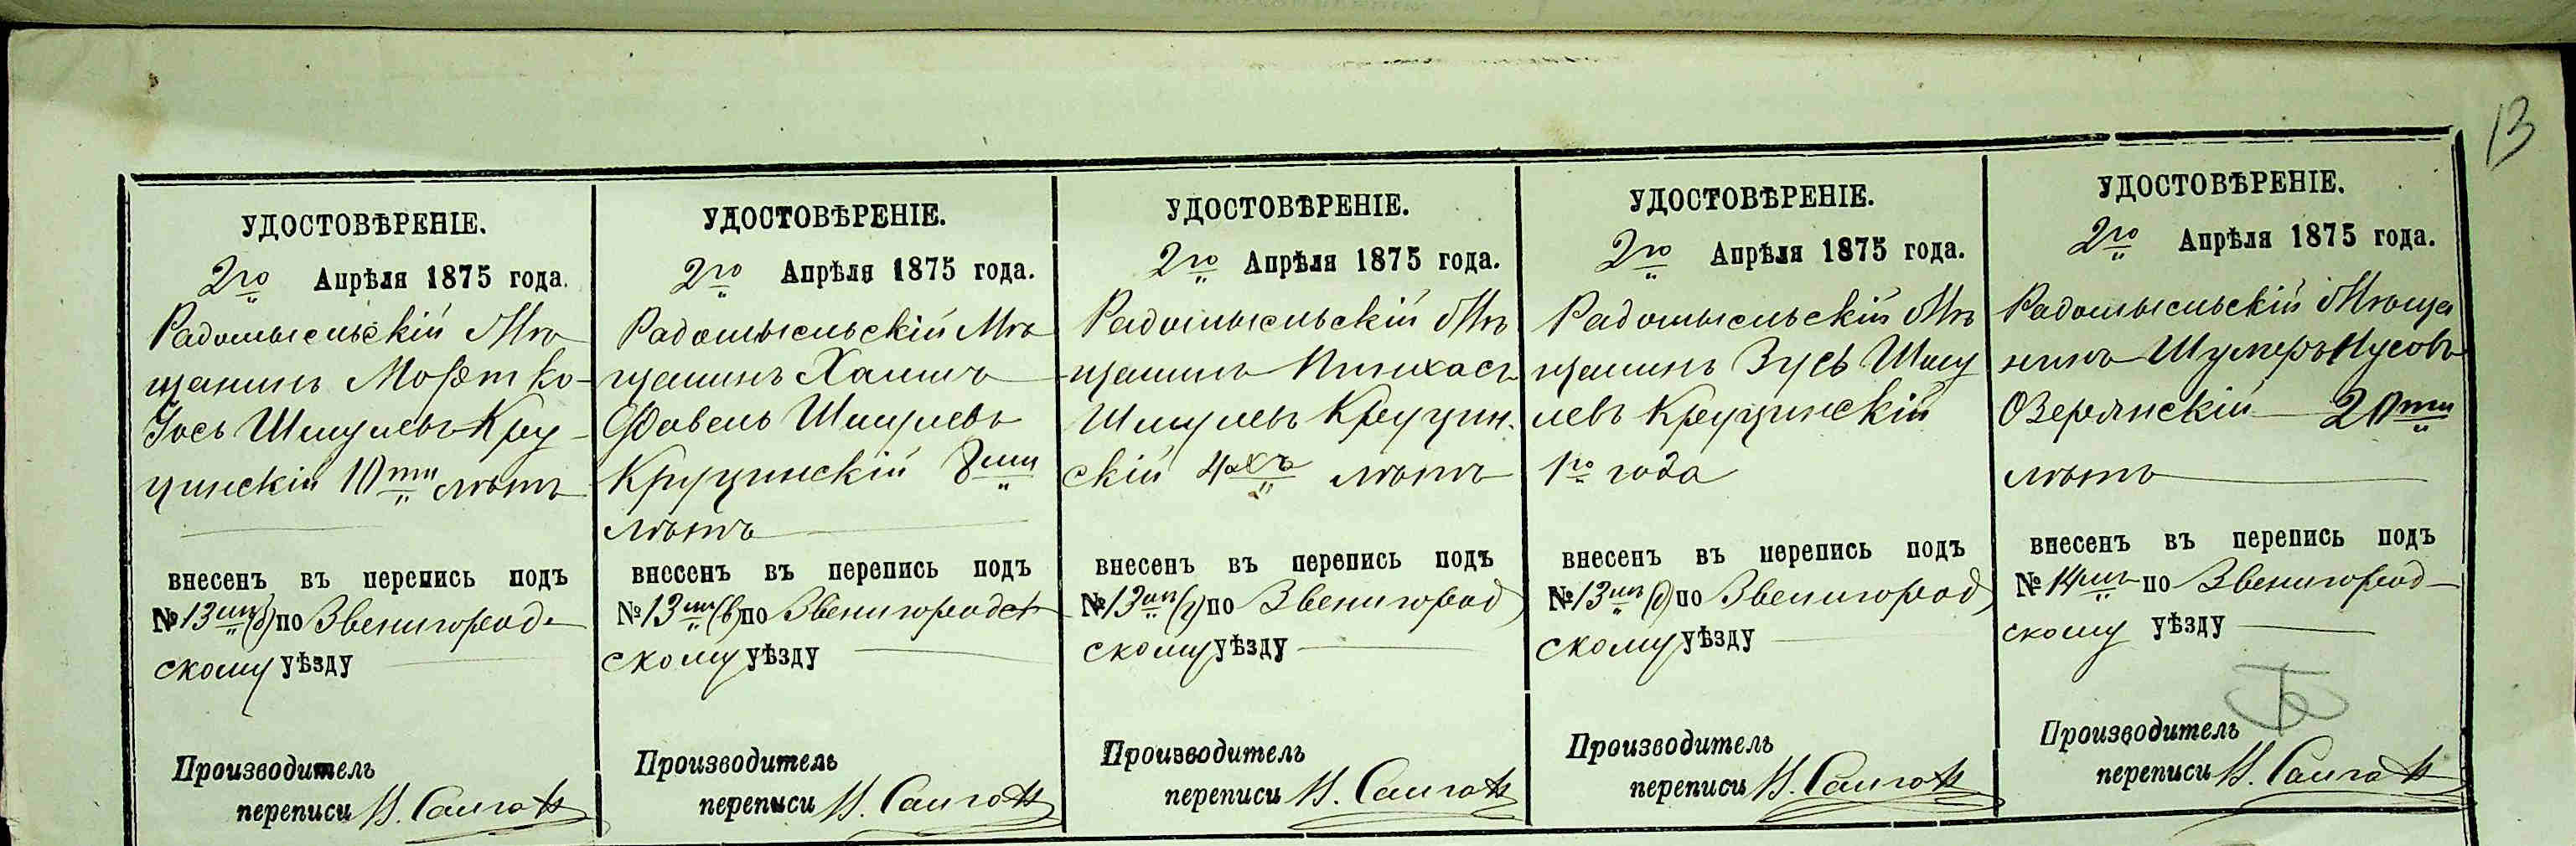 13
УДОСТОВѢРЕНІЕ.
2го Апрѣля 1875 года.
Радомысльскій Мѣ
щанинъ Мордко-
Іось Шмулевъ Кру-
цинскій 10ти лѣтъ
внесенъ въ перепись подъ
№ 13мъ (б) по Звенигород-
скому уѣзду
Производитель
переписи И.
УДОСТОВѢРЕНІЕ.
2го Апрѣля 1875 года.
Радомысльскій Мѣ
щанинъ Хаимъ
Файвель Шмулевъ
Круцинскій 8ми
лѣтъ
внесенъ въ перепись подъ
№ 13мъ (в) по Звенигородск
скому уѣзду
Производитель
переписи И.
УДОСТОВѢРЕНІЕ.
2го Апрѣля 1875 года.
Радомысльскій Мѣ
щанинъ Пинхасъ
Шмулевъ Круцин-
скій 4ахъ лѣтъ
внесенъ въ перепись подъ
№ 13мъ (г) по Звенигород
скому уѣзду
Производитель
переписи И.
УДОСТОВѢРЕНІЕ.
2го Апрѣля 1875 года.
Радомысльскій Мѣ
щанинъ Зусь Шму
левъ Круцинскій
1го года
внесенъ въ перепись подъ
№ 13мъ (д) по Звенигород
скому уѣзду
Производитель
переписи И.
УДОСТОВѢРЕНІЕ.
2го Апрѣля 1875 года.
Радомысльскій Мѣща
нинъ Шумеръ Нусовъ
Озерянскій 20ти
лѣтъ
внесенъ въ перепись подъ
№ 14мъ по Звенигород-
скому уѣзду
Производитель
переписи И.